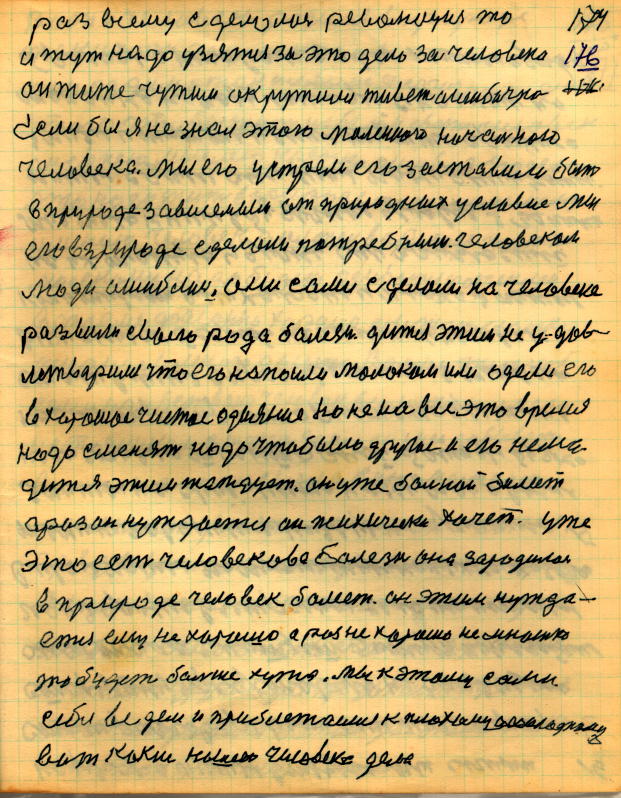 раз всему сделолая революция то 174
и тут надо узятися за это дело за человека 176
он тоже чужим окружили живет ошибачно
Если бы я не знал этого маленкого началного
человека. мы его устрели его заставили быть
в природе зависемым от природных условие мы
его в природе сделоли потребным. человеком
люди ошиблис, они сами сделоли на человека
развили своего рода балезн. дитя этим не у-дов-
летварили что его напоили молоком или одели его
в харошое чистое одияние но не на все это время
надо сменят надо чтобыло другое и его нема
дитя этим жаждует. он уже болной болеет
а раз он нуждается он психически хочет. уже
Это ест человекова балезн она зародилас
в природе человек болеет. он этим нужда-
ется ему не харашо а раз не харошо немношко
то будет болше хужо. мы к этому сами
себя ведем и приблежаемся к плохому
вот какие нашего человека дела